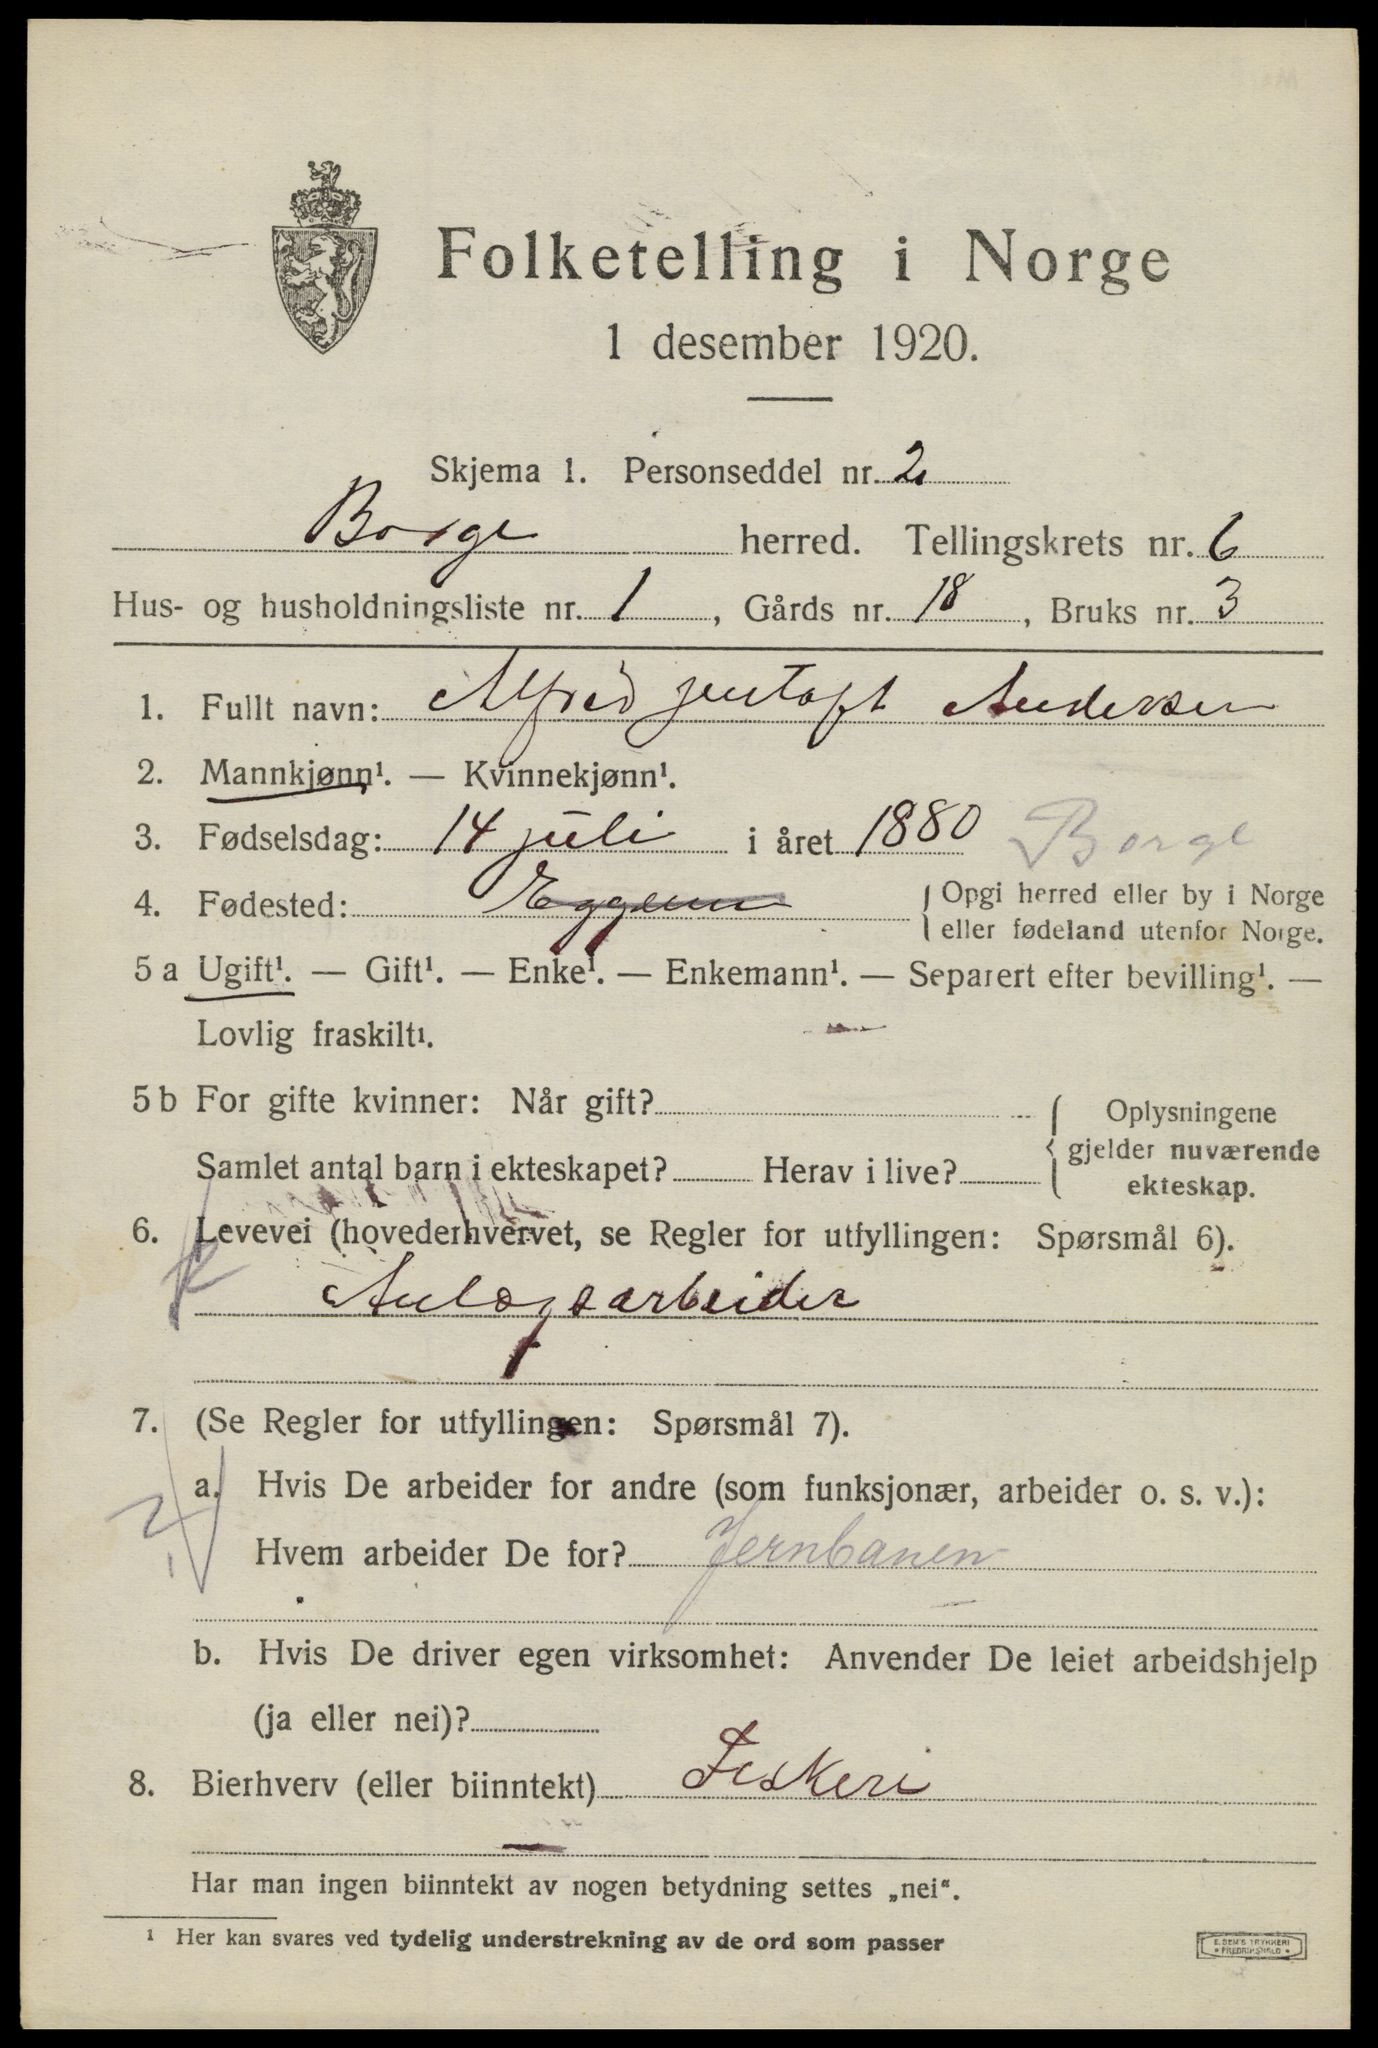 Folketelling i Norge
1 desember 1920.
Skjema 1. Personseddel nr. 2
Borge herred. Tellingskrets nr. 6
Hus- og husholdningsliste nr. 1, Gårds nr. 18, Bruks nr. 3
1. Fullt navn: Alfred Jentoft Andersen
2. Mannkjønn¹. — Kvinnekjønn¹.
3. Fødselsdag: 14 juli i året 1880 Borge
4. Fødested: Eggum { Opgi herred eller by i Norge
eller fødeland utenfor Norge.
5 a Ugift¹. — Gift¹. — Enke¹. — Enkemann¹. — Separert efter bevilling¹. —
Lovlig fraskilt¹.
5 b For gifte kvinner: Når gift? { Oplysningene
gjelder nuværende
Samlet antal barn i ekteskapet? Herav i live? ekteskap.
6. Levevei (hovederhvervet, se Regler for utfyllingen: Spørsmål 6).
Anlægsarbeider
7. (Se Regler for utfyllingen: Spørsmål 7).
a. Hvis De arbeider for andre (som funksjonær, arbeider o. s. v.):
Hvem arbeider De for? Jernbanen
b. Hvis De driver egen virksomhet: Anvender De leiet arbeidshjelp
(ja eller nei)?
8. Bierhverv (eller biinntekt) Fiskeri
Har man ingen biinntekt av nogen betydning settes „nei“.
¹ Her kan svares ved tydelig understrekning av de ord som passer
E. SEM'S TRYKKERI
• FREDRIKSHALD •